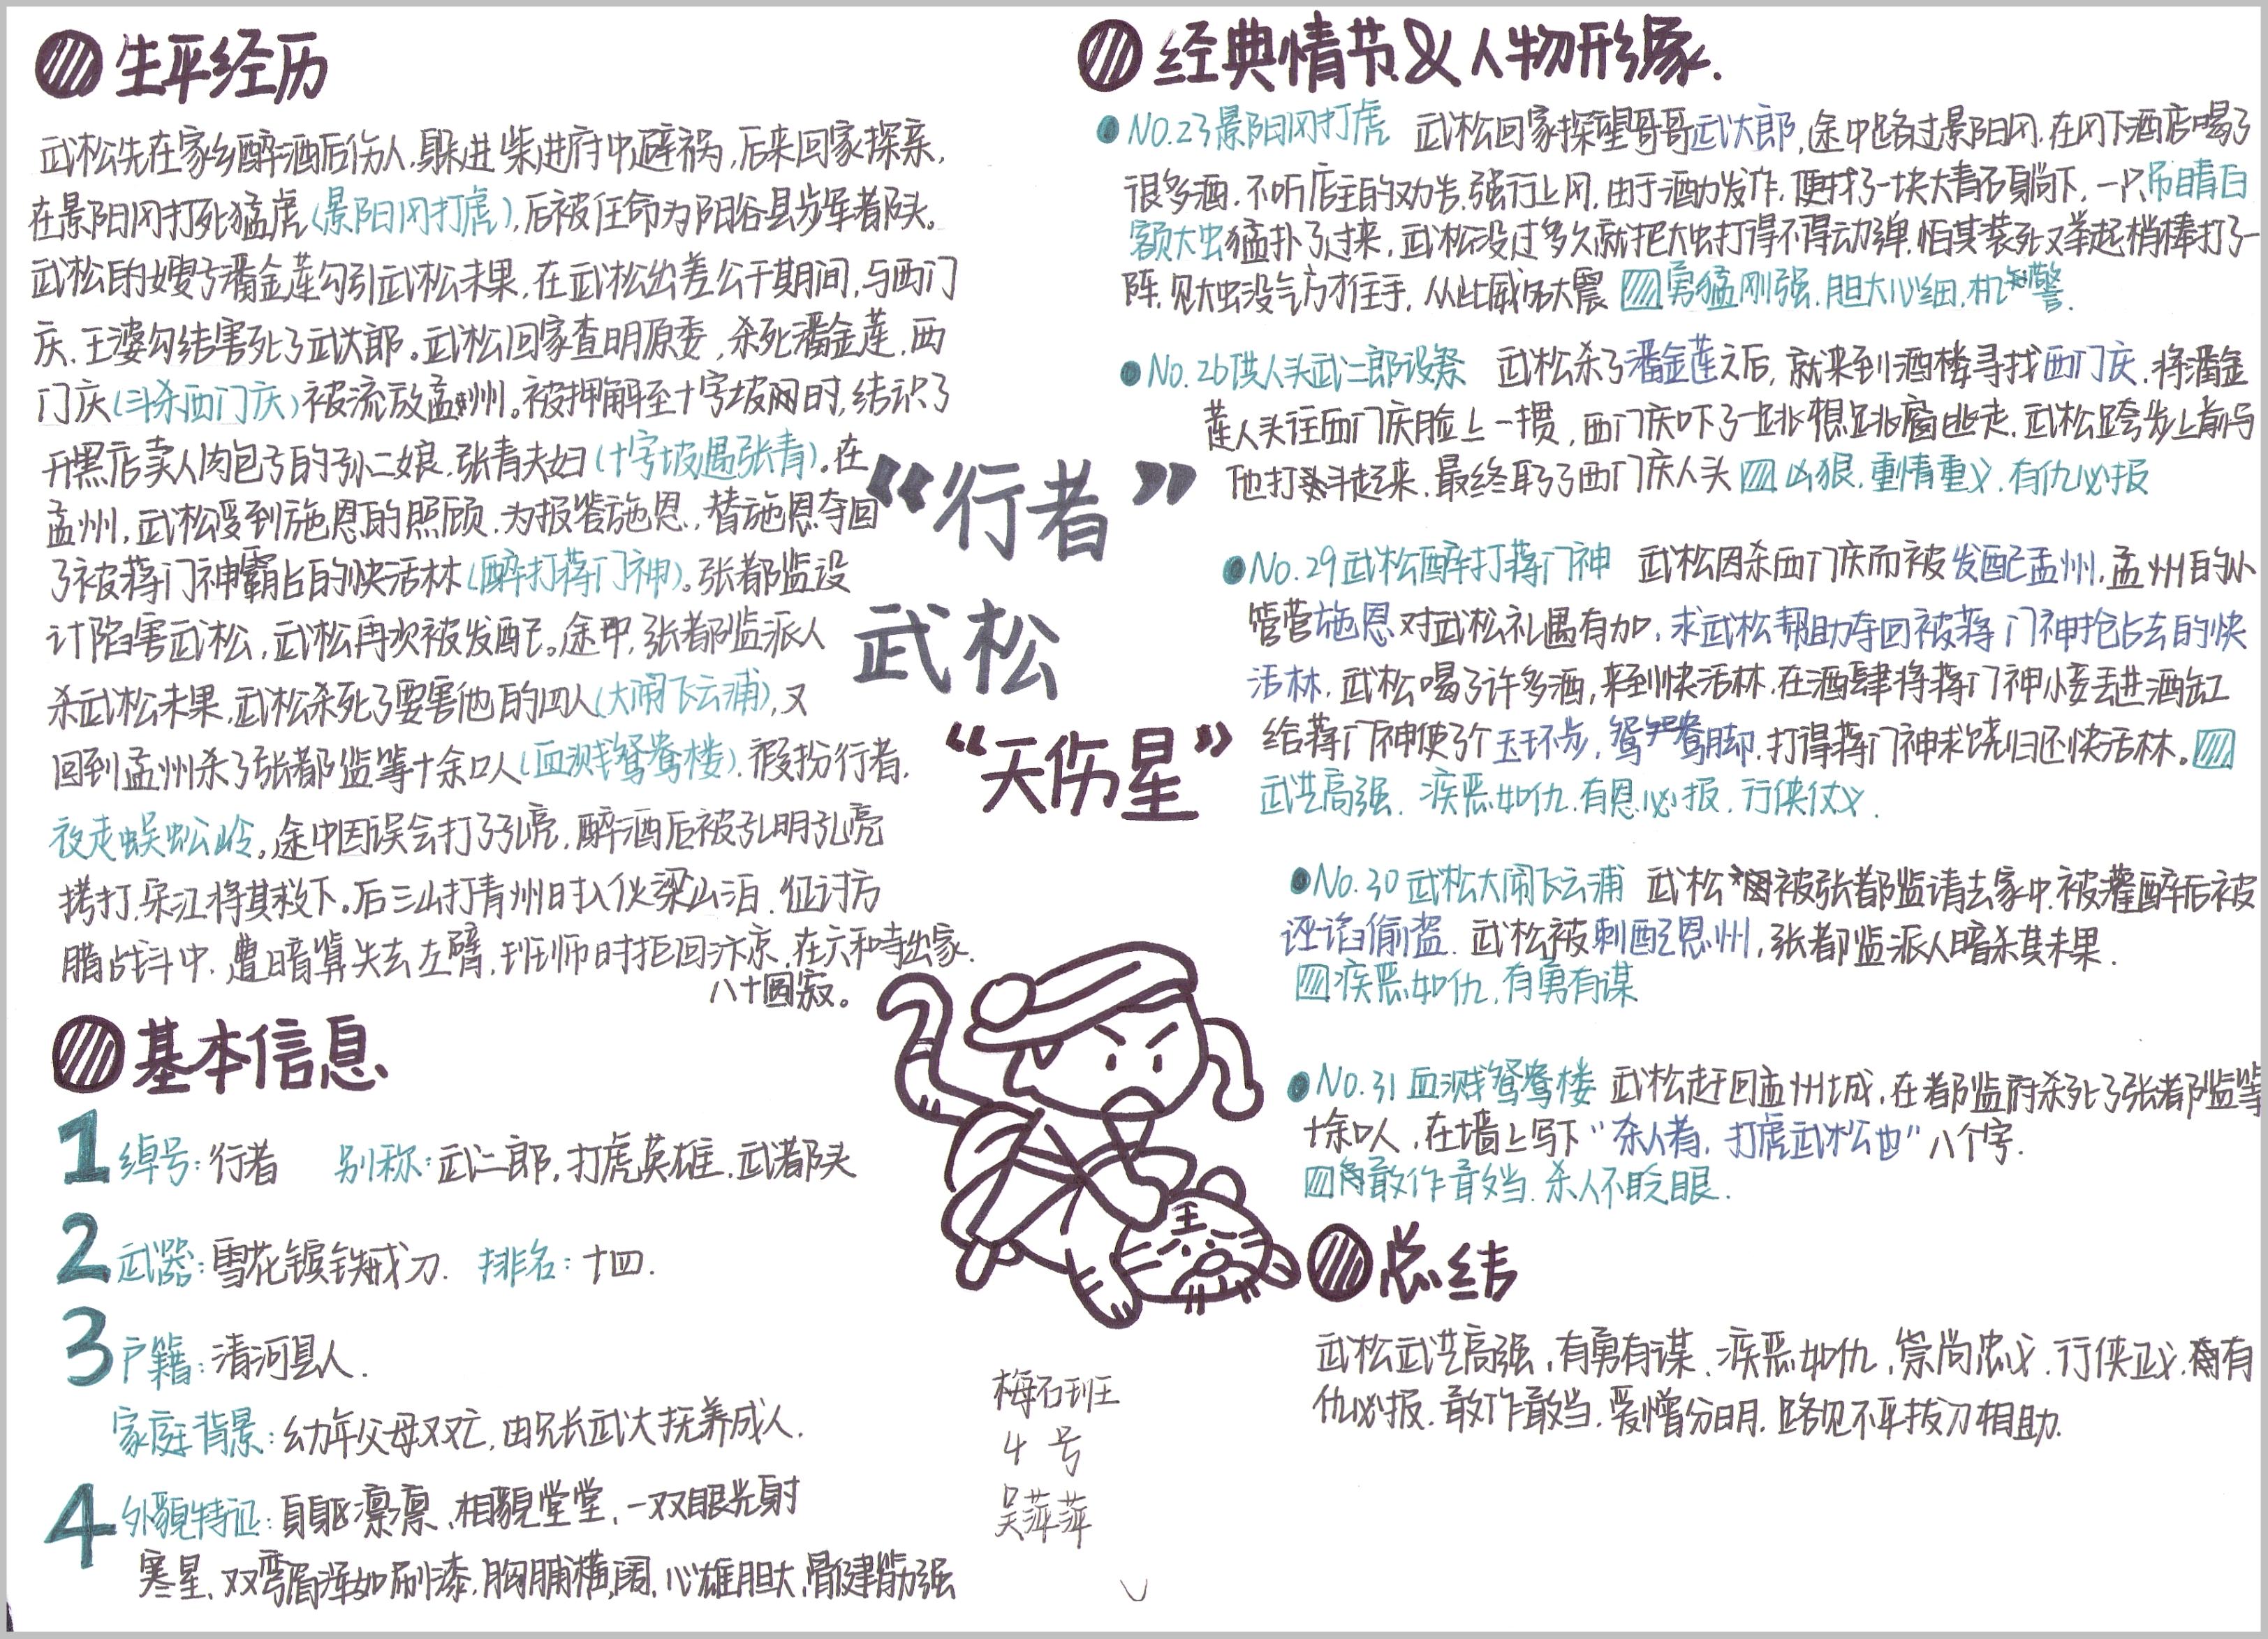 生平经历
武松先在家乡醉酒后伤人,躲进柴进府中避祸,后来回家探亲,
在景阳冈打死猛虎(景阳冈打虎),后被任命为阳谷县步军都头。
武松的嫂子潘金莲勾引武松未果,在武松出差公干期间,与西门
庆、王婆勾结害死了武大郎。武松回家查明原委,杀死潘金莲、西
门庆(斗杀西门庆)被流放孟州。被押解至十字坡时,结识了
开黑店卖人肉包子的孙二娘、张青夫妇(十字坡遇张青)。在
孟州,武松受到施恩的照顾,为报答施恩,替施恩夺回
了被蒋门神霸占的快活林(醉打蒋门神)。张都监设
计陷害武松,武松再次被发配。途中,张都监派人
杀武松未果,武松杀死了要害他的四人(大闹飞云浦),又
回到孟州杀了张都监等十余口人(血溅鸳鸯楼)、假扮行者,
夜走蜈蚣岭。途中因误会打了孔亮,醉酒后被孔明孔亮
拷打,宋江将其救下。后三山打青州时入伙梁山泊、征讨方
腊战斗中,遭暗算失去左臂,班师时拒回汴京,在六和寺出家,
八十圆寂。
基本信息
1 绰号:行者 别称:武二郎,打虎英雄、武都头
2 武器:雪花镔铁戒刀. 排名:十四.
3 户籍:清河县人.
家庭背景:幼年父母双亡,由兄长武大抚养成人.
4 外貌特征:身躯凛凛、相貌堂堂、一双眼光射
寒星、双弯眉浑如刷漆,胸脯横阔、心雄胆大、骨健筋强
“行者”
武松
“天伤星”
梅石班
4号
吴萍萍
经典情节&人物形象.
No.23景阳冈打虎 武松回家探望哥哥武大郎,途中路过景阳冈.在冈下酒店喝了
很多酒.不听店主的劝告,强行上冈.由于酒力发作.便找了一块大青石身躺下,一只吊睛白
额大虫猛扑了过来,武松没过多久就把大虫打得不得动弹,怕其装死又举起梢棒打了一
阵,见大虫没气方才住手,从此威名大震 勇猛刚强、胆大心细、机警.
No.26供人头武二郎设祭 武松杀了潘金莲之后,就来到酒楼寻找西门庆.将潘金
莲人头往西门庆脸上一掼,西门庆吓了一跳想跳窗逃走.武松跨步上前与
他打斗起来,最终取了西门庆人头 凶狠、重情重义、有仇必报
No.29武松醉打蒋门神 武松因杀西门庆而被发配孟州,孟州的小
管营施恩对武松礼遇有加,求武松帮助夺回被蒋门神抢占去的快
活林.武松喝了许多酒,来到快活林.在酒肆将蒋门神小妾丢进酒缸
给蒋门神使了个玉环步,鸳鸯脚.打得蒋门神求饶归还快活林。
武艺高强、疾恶如仇.有恩必报、行侠仗义.
No.30武松大闹飞云浦 武松被张都监请去家中.被灌醉后被
诬陷偷盗.武松被刺配恩州,张都监派人暗杀其未果.
疾恶如仇、有勇有谋
No.31血溅鸳鸯楼 武松赶回孟州城,在都监府杀死了张都监等
十余口人,在墙上写下“杀人者,打虎武松也”八个字.
敢作敢当、杀人不眨眼.
总结
武松武艺高强,有勇有谋、疾恶如仇,崇尚忠义、行侠正义、有
仇必报、敢作敢当、爱憎分明、路见不平拔刀相助.